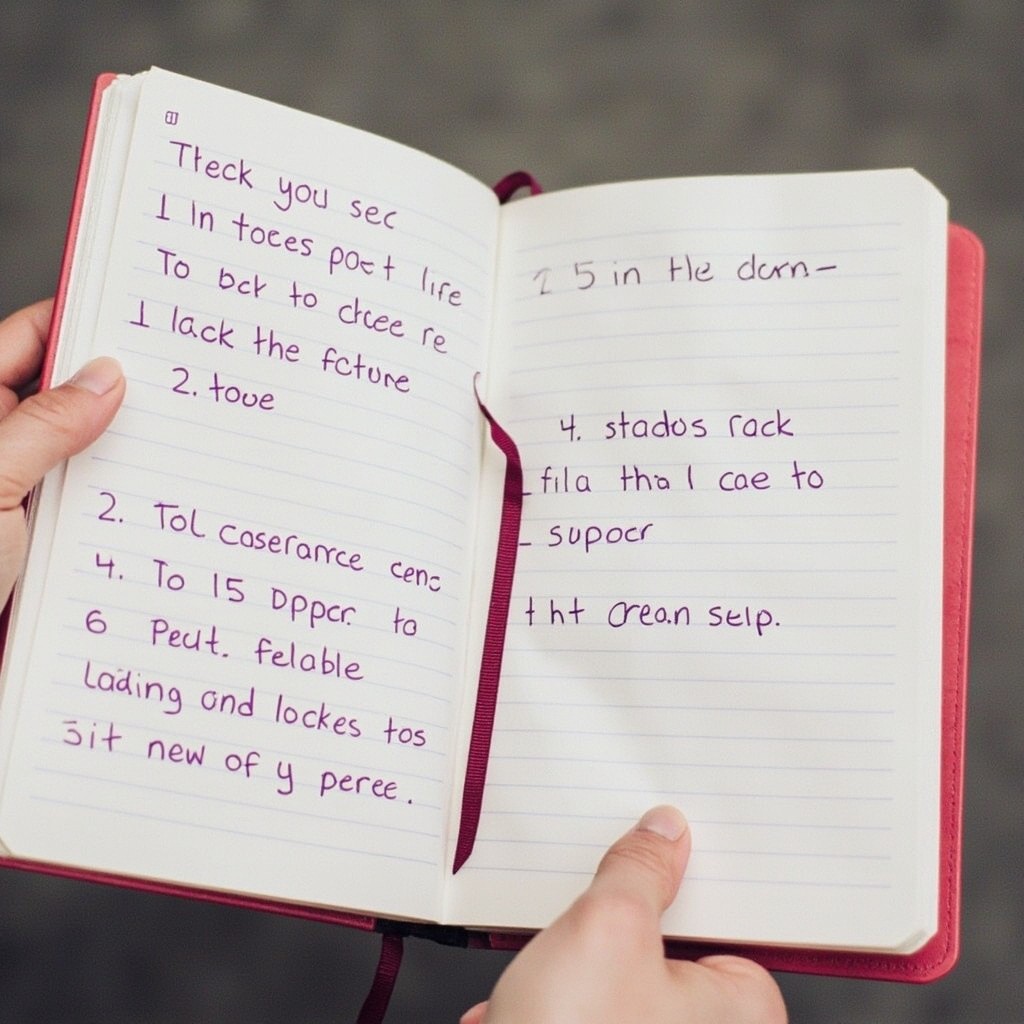 Tteck you sec
1 In toces poet life
To bcr to ctcee re
1 lack the fcture
2. toue
2. ToL Coserarrce cenc
4. To 15 Dppcr. to
6 Peut. felable
Lading and lockes tos
Sit new of y peree.
2 5 in tle dcrn–
4. stados rack
fila tha I cae to
– supocr
tht Orean selp.